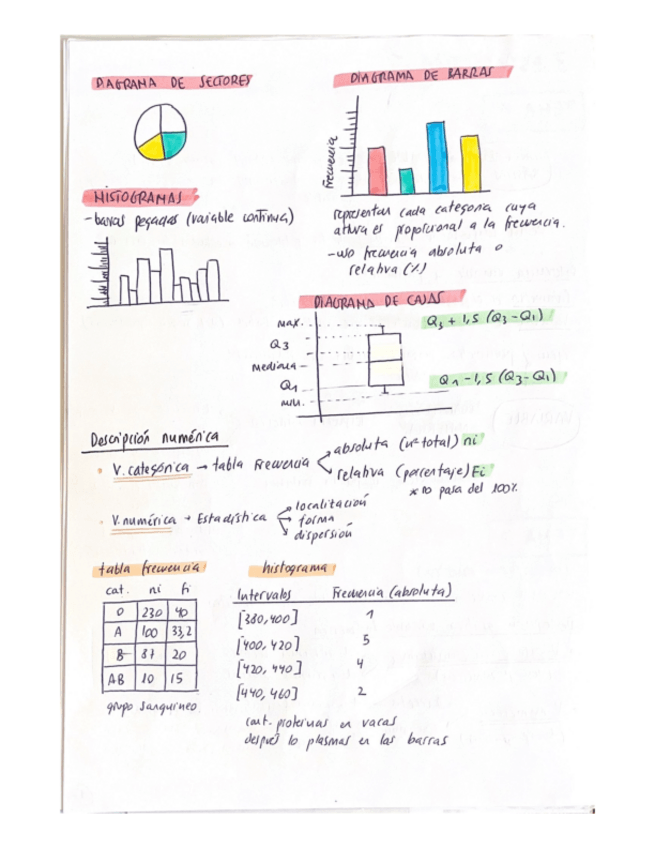 DIAGRAMA DE SECTORES
DIAGRAMA DE BARRAS
Frecuencia
representan cada categoría cuya
altura es proporcional a la frecuencia.
-uso frecuencia absoluta o
relativa (%)
HISTOGRAMAS
-barras pegadas (variable continua)
DIAGRAMA DE CAJAS
Max.
Q3
mediana
Q1
min.
Q3 + 1,5 (Q3-Q1)
Q1 - 1,5 (Q3-Q1)
Descripción numérica
• V. categórica → tabla frecuencia
absoluta (nº total) ni
relativa (porcentaje) Fi
* no pasa del 100%
• V. numérica → Estadística
localitación
forma
dispersión
tabla frecuencia
cat. ni fi
O 230 40
A 100 33,2
B 87 20
AB 10 15
grupo sanguineo
histograma
Intervalos Frecuencia (absoluta)
[380,400] 1
[400, 420] 5
[420, 440] 4
[440, 460] 2
cant. proteinas en vacas
despues lo plasmas en las barras